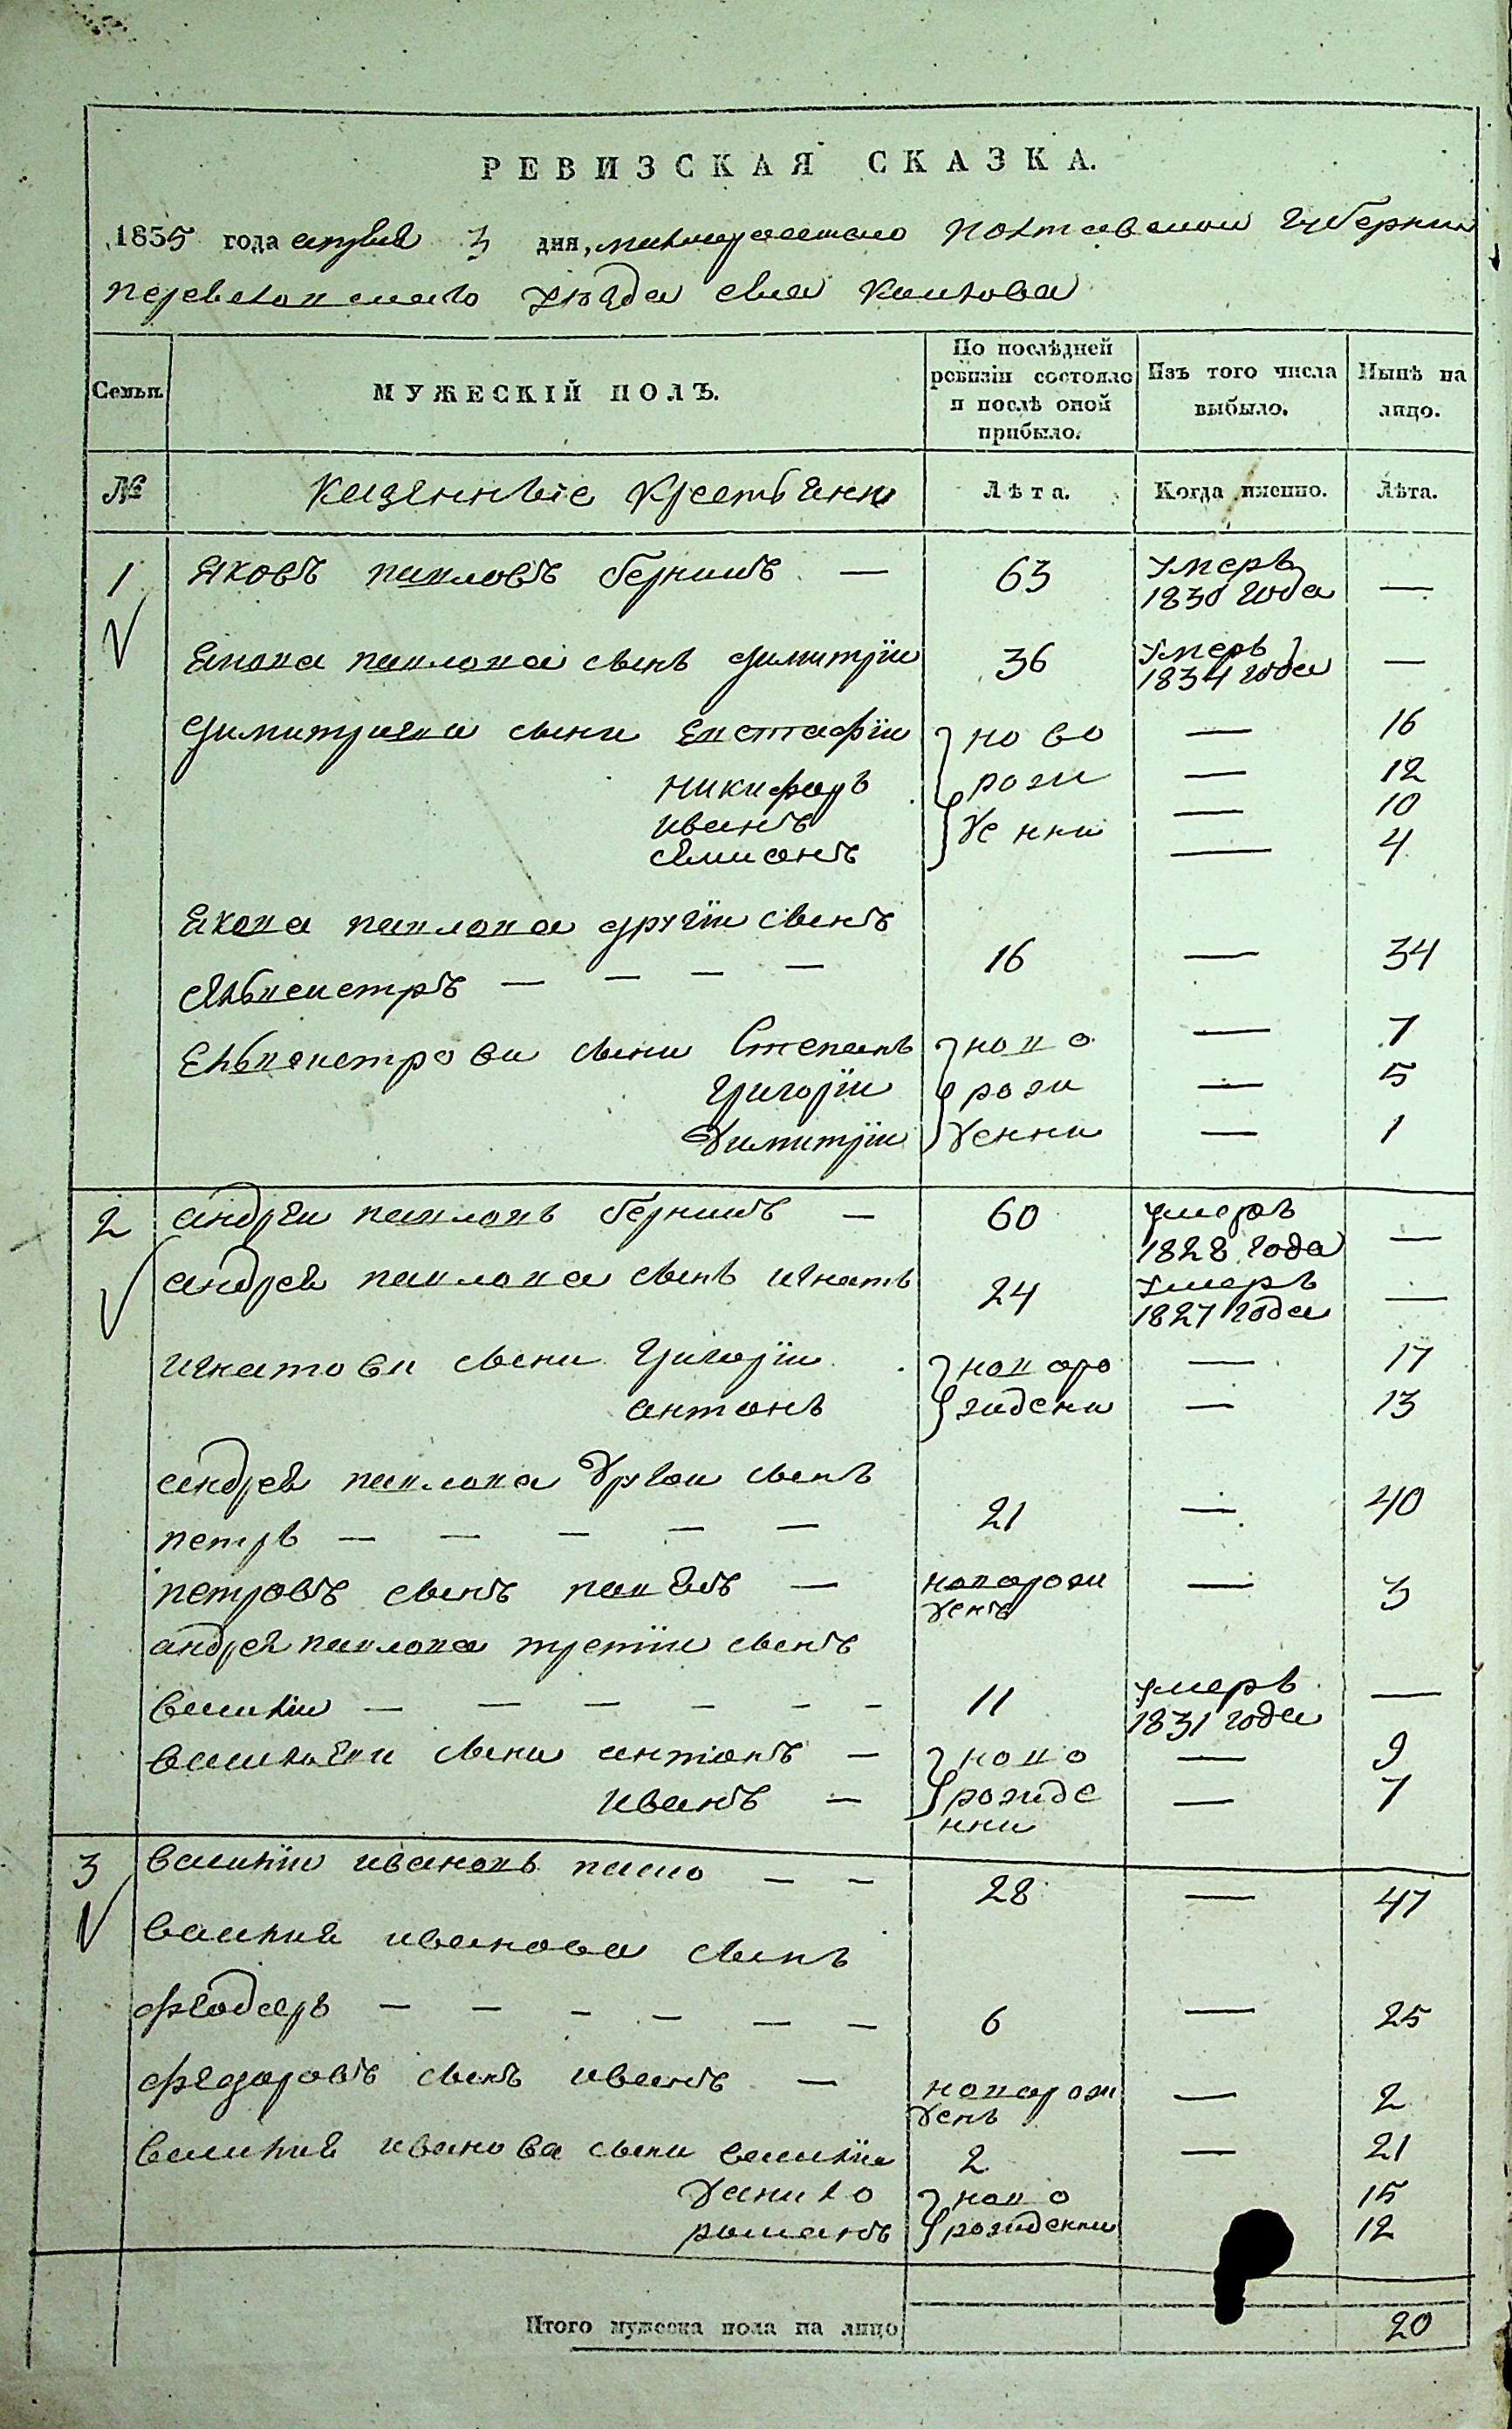 РЕВИЗСКАЯ СКАЗКА.
1835 года апреля 3 дня, Полтавской губернии
уезда села
Семьи.
МУЖЕСКІЙ ПОЛЪ.
По послѣдней ревизіи состояло и послѣ оной прибыло.
Изъ того числа выбыло.
Нынѣ на лицо.
№ казенные крестьяне Лѣта. Когда именно. Лѣта.
1 Яковъ павловъ — 63 умеръ 1830 года —
Якова павлова сынъ димитрій 36 умеръ 1834 года —
димитріева сыни евстафій ново — 16
никифоръ рож — 12
иванъ денни — 10
симионъ — 4
Якова павлова другій сынъ
сельвестръ — — — — 16 — 34
сельвестрови сыни Степанъ ново — 7
григорій рож — 5
димитрій денни — 1
2 андрей павловъ — 60 умеръ 1828 года —
андрея павлова сынъ игнатъ 24 умеръ 1827 года —
игнатови сыни григорій новоро — 17
антонъ ждени — 13
андрея павлова другой сынъ
петръ — — — — — 21 — 40
петровъ сынъ павелъ — еноворож денъ — 3
андрея павлова третій сынъ
василій — — — — — — 11 умеръ 1831 года —
васильеви сыни антонъ — ново — 9
иванъ — рожде нни — 7
3 василій ивановъ — — 28 — 47
василия иванова сынъ
феодоръ — — — — — — 6 — 25
федоровъ сынъ иванъ — новорож денъ — 2
василия иванова сыни василій 2 — 21
данило ново 15
романъ рожденни 12
Итого мужеска пола на лицо 20